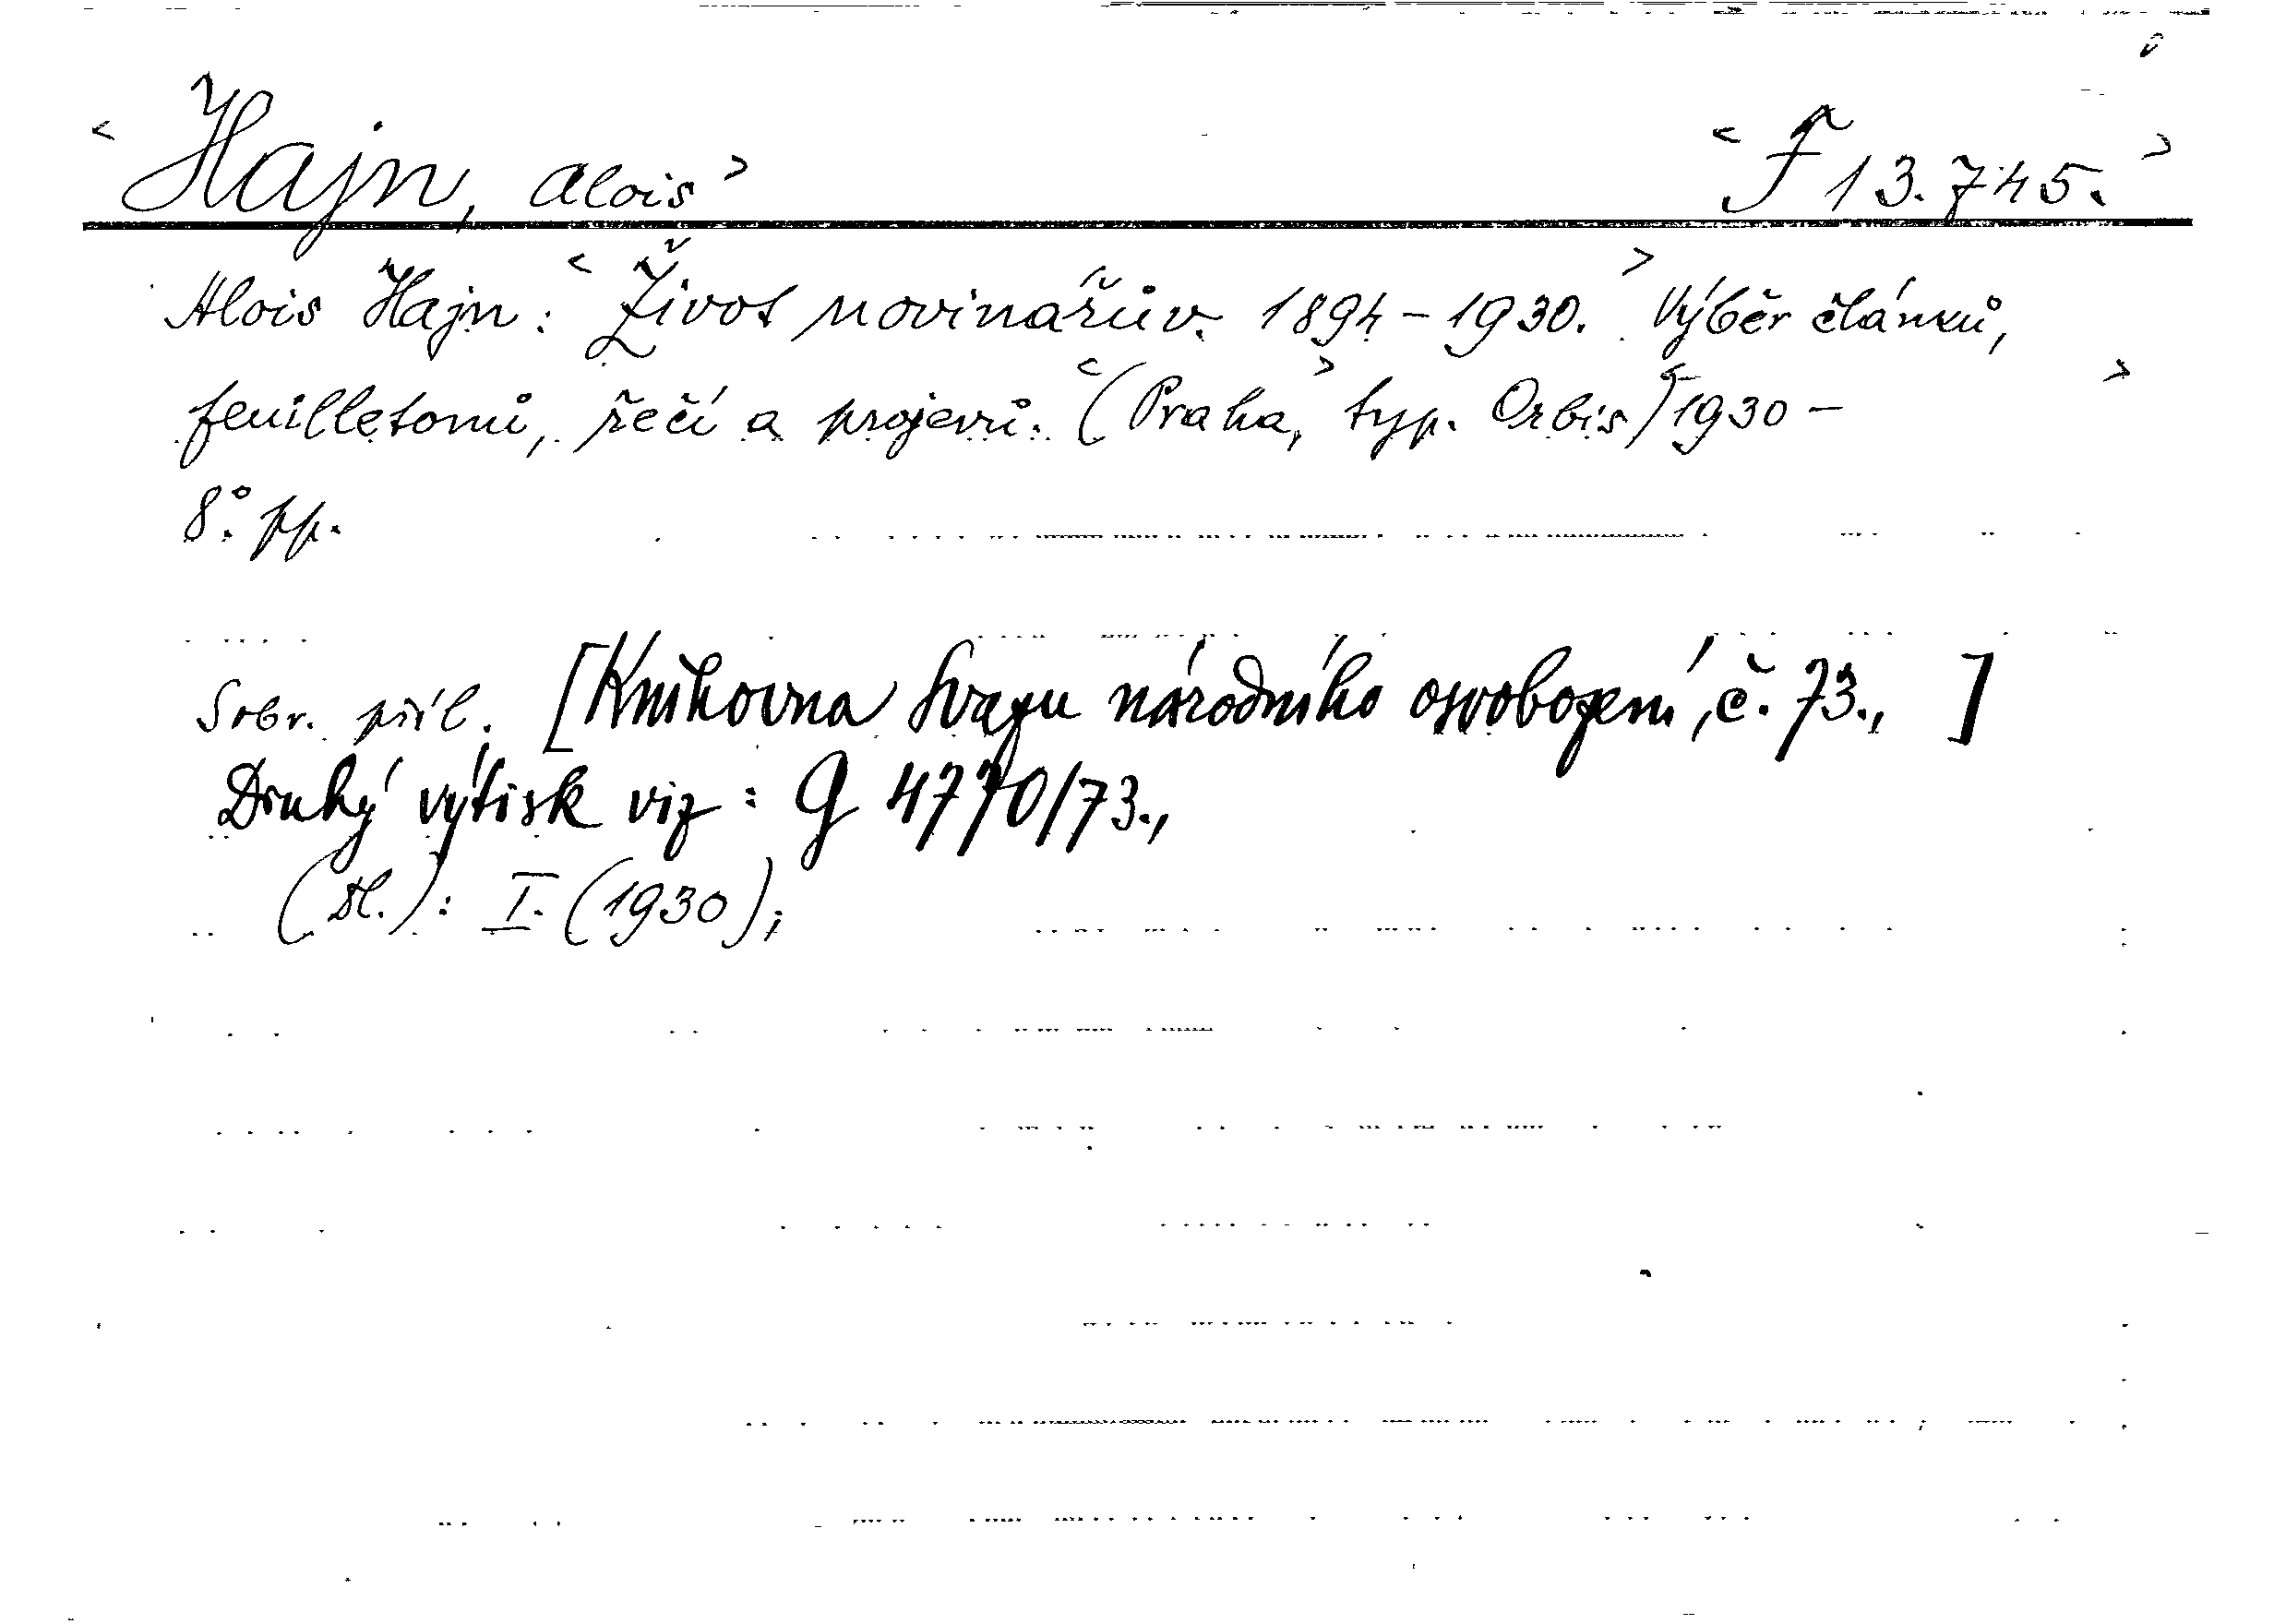 < Hajn, Alois > < F 13.745. >
Alois Hajn: < Život novinářův. 1894-1930. > Výběr článků,
feuilletonů, řečí a projevů. < (Praha, > typ. Orbis) < 1930 - >
8°. pp.
Sobr. příl. [Knihovna Svazu národního osvobození, č. 73., ]
Druhý výtisk viz: G 4770/73.,
(Dl.): I. (1930);